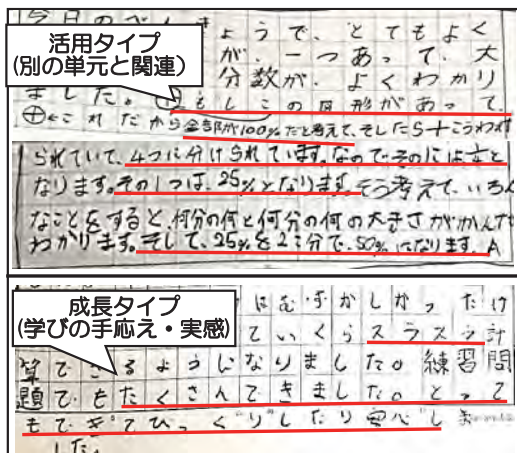 今日のべんきょうで、とてもよく
活用タイプ
(別の単元と関連)
が、一つあって、大
分数が、よくわかり
ました。⊕もしこの図形があって、
⊕←これだから全部が100%だと考えて、そしたら
られていて、4つに分けられています。なのでその
なります。その1つは、25%となります。そう考えて、いろん
なことをすると、何分の何と何分の何の大きさがかんたんに
わかります。そして、25%を2こ分で、50%になります。A
成長タイプ
(学びの手応え・実感)
はむずかしかったけ
ていくらスラスラ計
算できるようになりました。練習問
題でもたくさんできました。とって
もできてびっくりしたり安心しま
した。